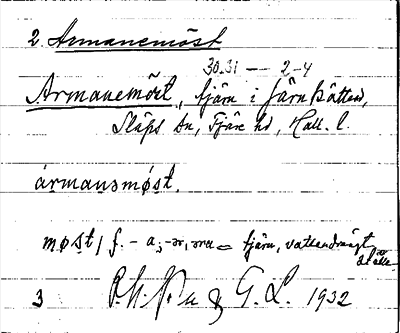 2. Armanemöst
30.31 — 2-4
Armanemöst, tjärn i Järnbåtten,
Släps sn, Fjäre hd, Hall. l.
ármansmøst.
møst, f. - a; -ər, ərna = tjärn, vattendrägt
ställe
3 G. L. 1932